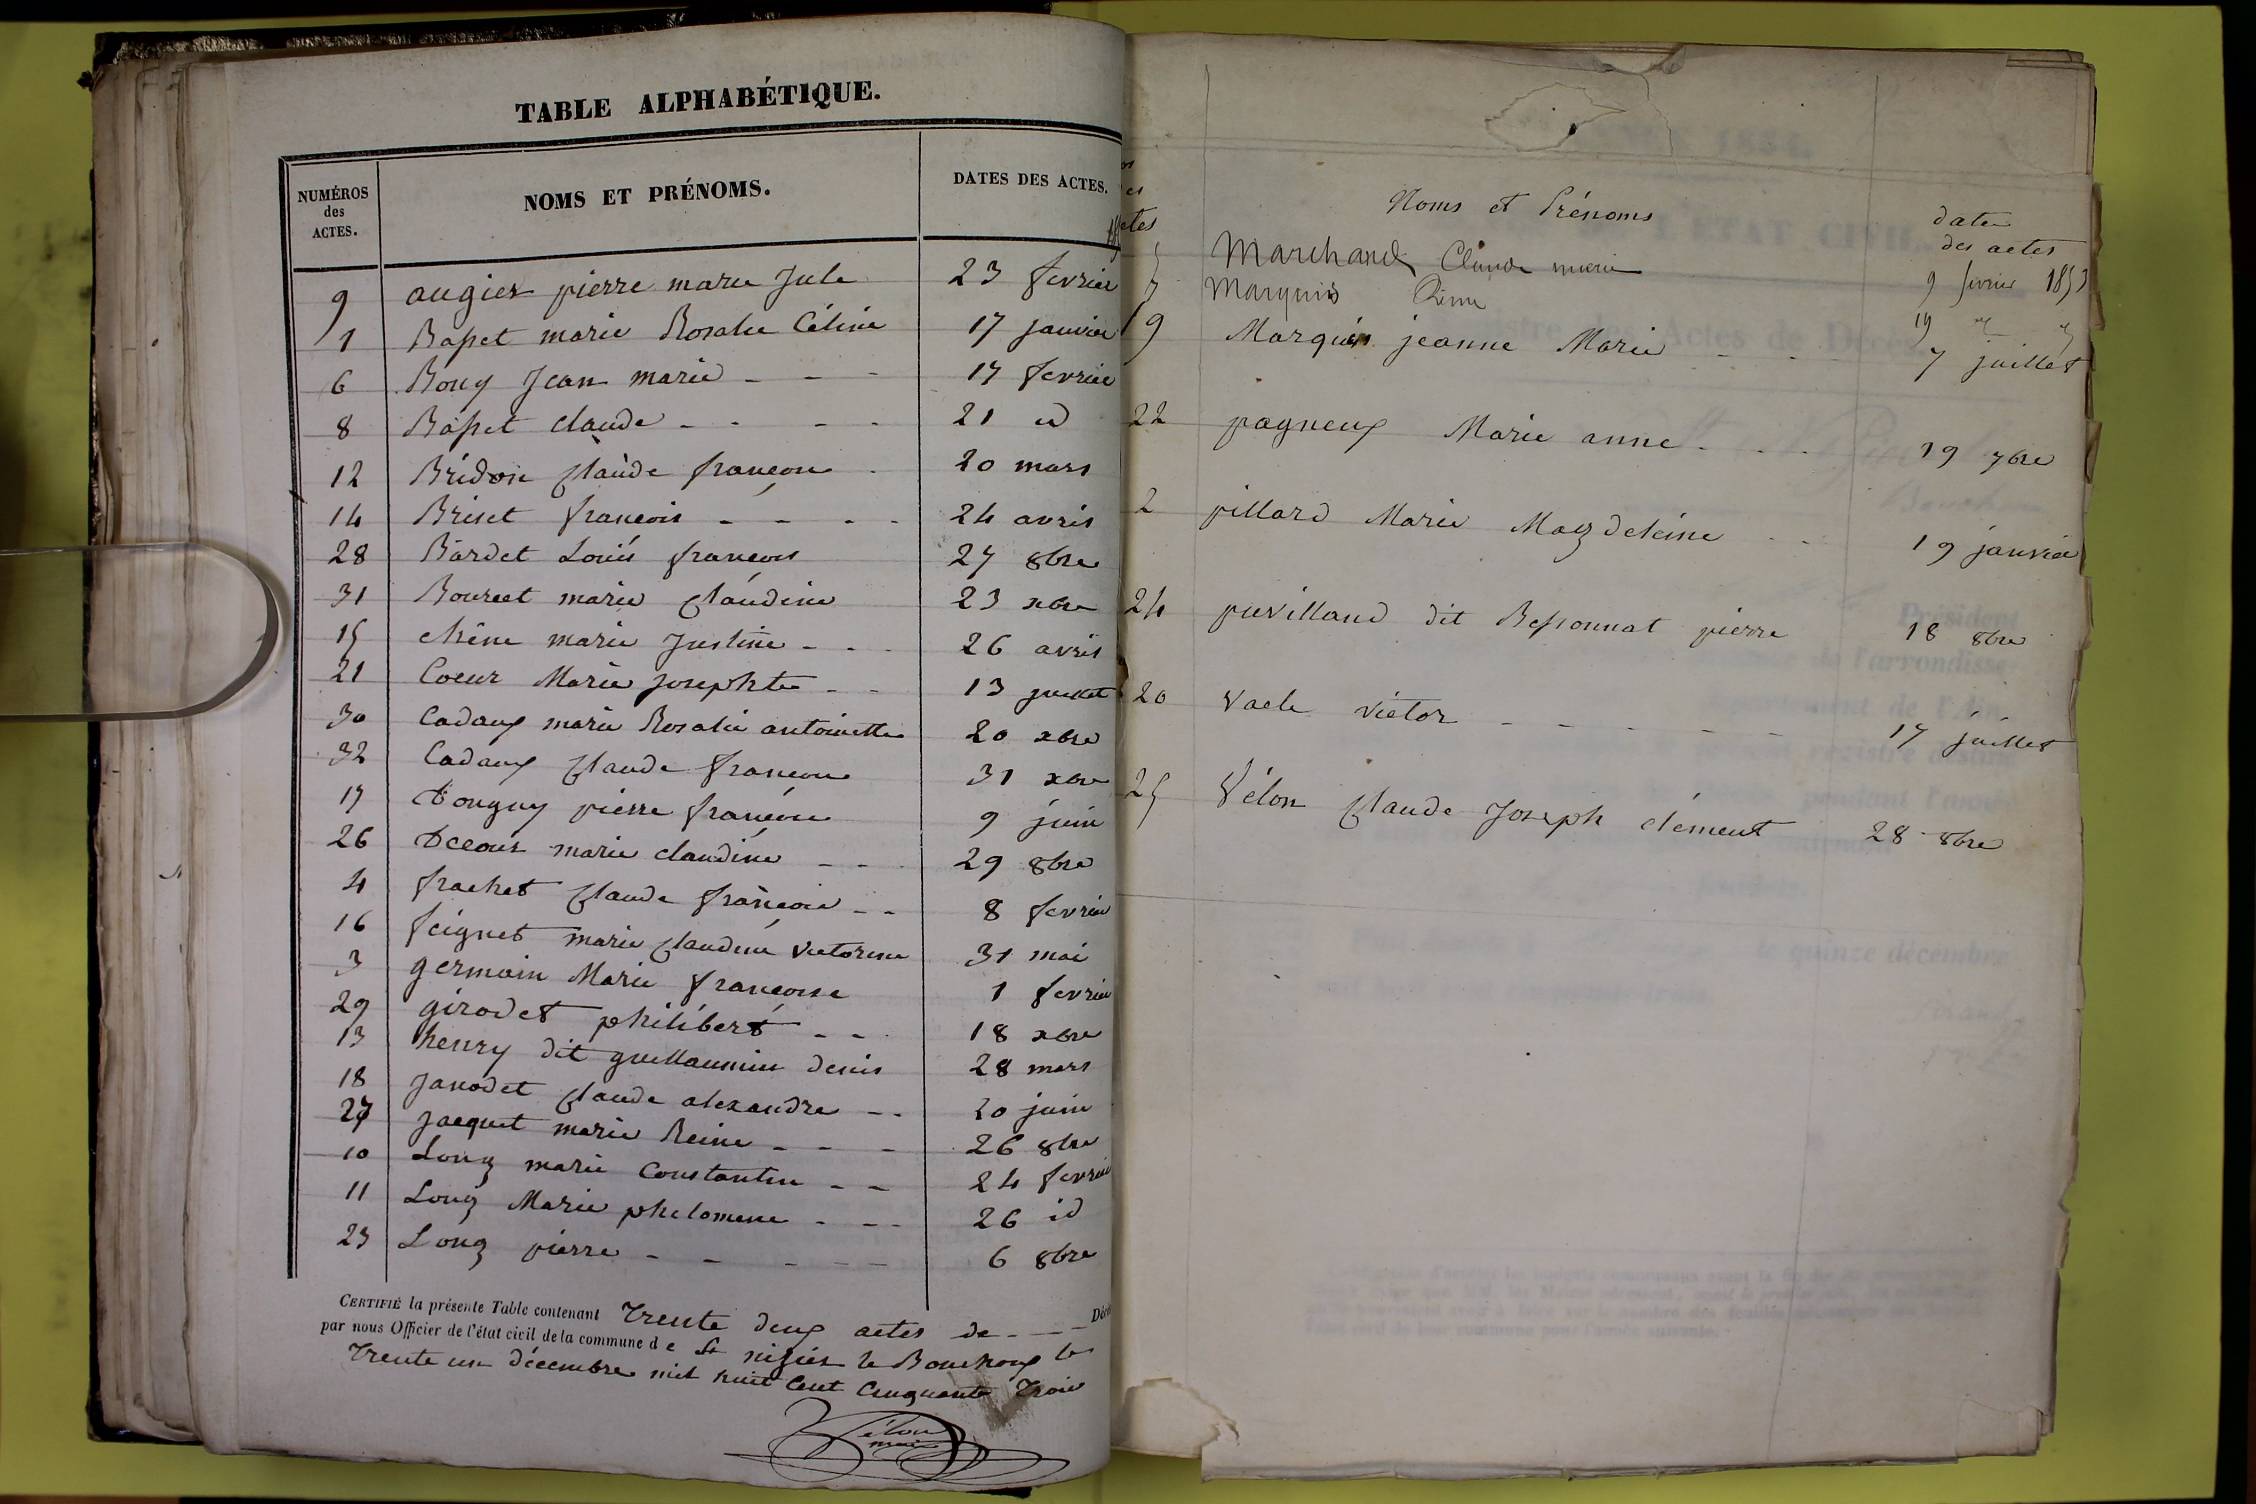 TABLE ALPHABÉTIQUE.
NUMÉROS des ACTES. NOMS ET PRÉNOMS. DATES DES ACTES.
9 augier pierre marie Jule 23 fevrier
1 Basset marie Rosalie Céline 17 janvier
6 Bouy Jean marie - - - 17 fevrier
8 Basset claude - - - - 21 id
12 Bridon Claude françois - 20 mars
14 Briset françois - - - - 24 avril
28 Bardet Louis françois 27 8bre
31 Bourcet marie Claudine 23 xbre
15 chêne marie Justine - - - 26 avril
21 Coeur Marie josephte - - 13 juillet
30 Cadaux marie Rosalie antoinette 20 xbre
32 Cadaux Claude françois 31 xbre
17 Dougny pierre françois 9 juin
26 Decour marie claudine - - - 29 8bre
4 frachet Claude françois - - 8 fevrier
16 feignet marie Claudine victorine 31 mai
3 germain Marie françoise 1 fevrier
29 girodet philibert - - 18 xbre
13 henry dit guillaumin denis 28 mars
18 janodet Claude alexandre - - 20 juin
27 jacquet marie Reine - - - 26 8bre
10 Long marie Constantin - - 24 fevrier
11 Long Marie philomene - - - 26 id
23 Long pierre - - - - - 6 8bre
CERTIFIÉ la présente Table contenant Trente deux actes de - - - Décès
par nous Officier de l'état civil de la commune de St nizier le Bouchoux le
Trente un décembre mil huit Cent Cinquante Trois
Vélon
maire
actes Noms et Prénoms date des actes
5 Marchand Claude marie 9 fevrier 1853
7 Marquis 19
19 Marquis jeanne Marie - - - 7 juillet
22 pagneux Marie anne - - - 19 7bre
2 pillard Marie Magdeleine - - 19 janvier
24 puvilland dit Bessonnat pierre 18 8bre
20 vacle victor - - - - - 17 juillet
25 Vélon Claude Joseph clément 28 8bre